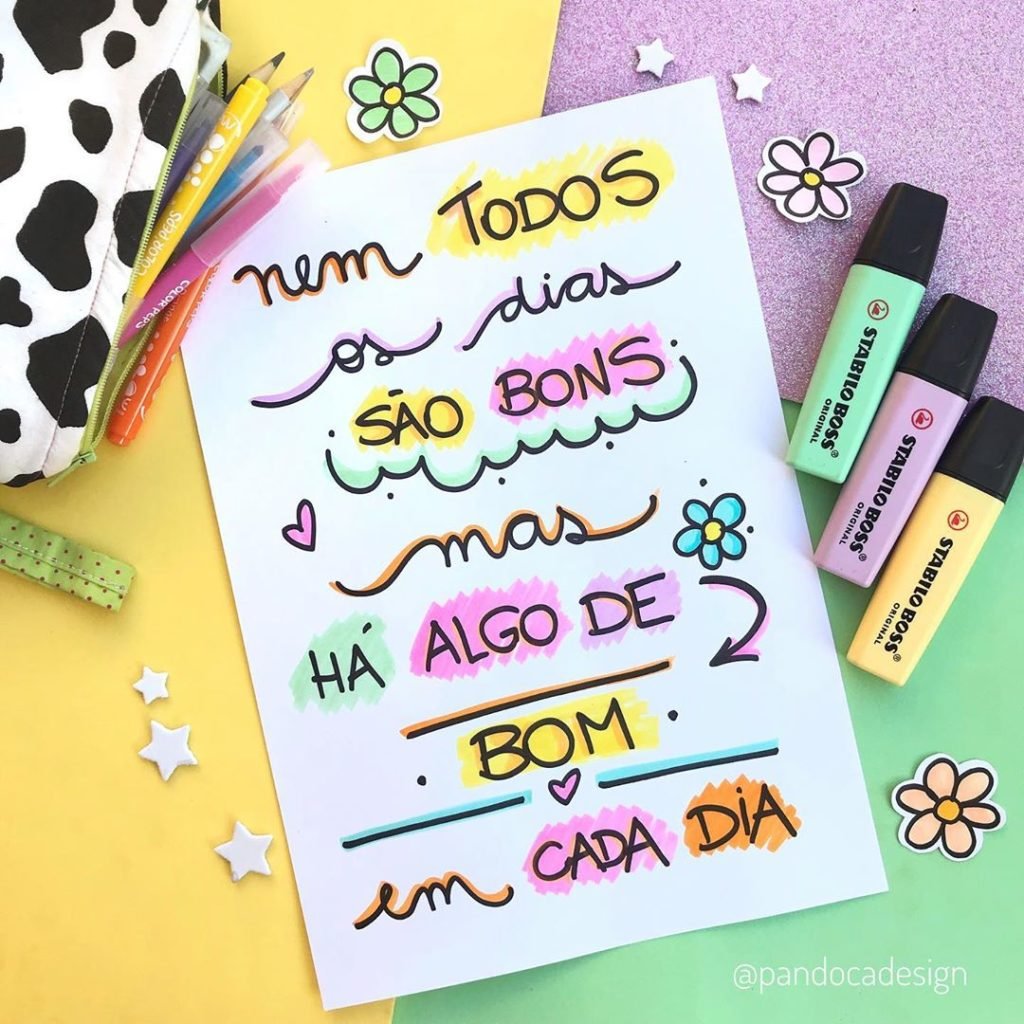 nem TODOS
os dias
SÃO BONS
mas
HÁ ALGO DE
BOM
em CADA DIA
STABILO BOSS
ORIGINAL
STABILO BOSS
ORIGINAL
STABILO BOSS
ORIGINAL
COLOR'PEPS
COLOR'PEPS
@pandocadesign